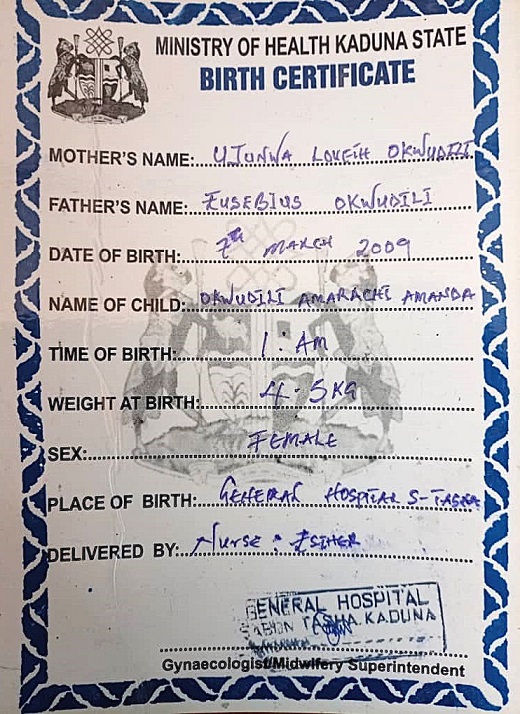 MINISTRY OF HEALTH KADUNA STATE
BIRTH CERTIFICATE
MOTHER'S NAME: UJUNWA LOVEIH OKWUDILI
FATHER'S NAME: EUSEBIUS OKWUDILI
DATE OF BIRTH: 7th MARCH 2009
NAME OF CHILD: OKWUDILI AMARACHI AMANDA
TIME OF BIRTH: 1: AM
WEIGHT AT BIRTH: 4.5KG
SEX: FEMALE
PLACE OF BIRTH: GENERAL HOSPITAL S-TASHA
DELIVERED BY: Nurse: ESTHER
GENERAL HOSPITAL
SABON TASHA KADUNA
Gynaecologist/Midwifery Superintendent